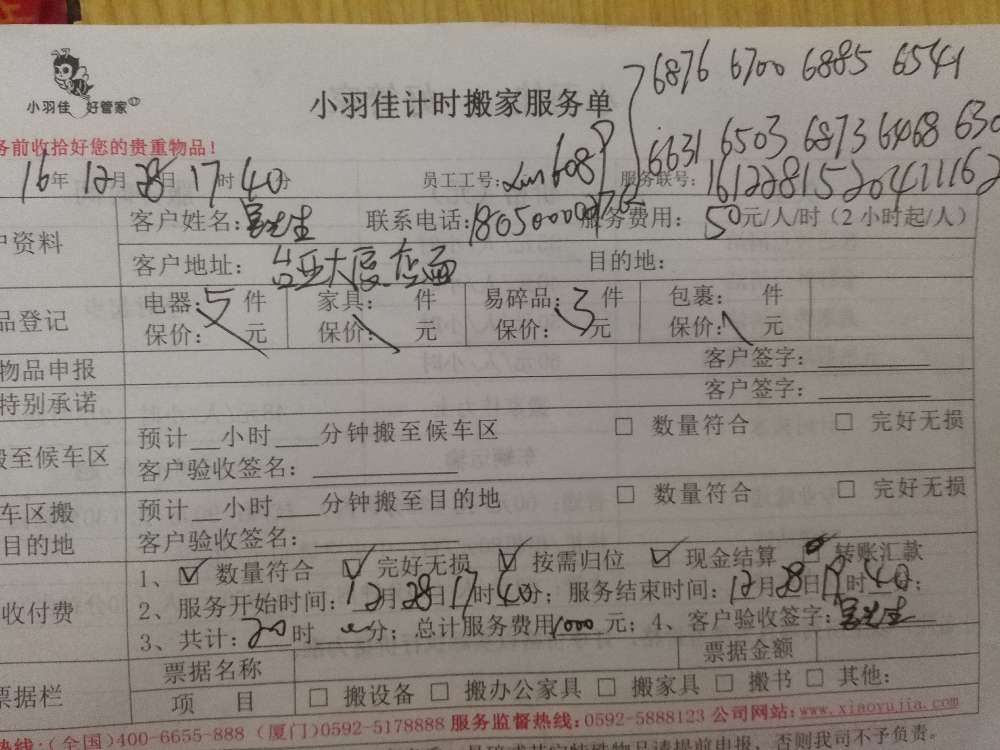 小羽佳 好管家
小羽佳计时搬家服务单
6876 6700 6885 6541
6631 6503 6873 6468 630
务前收拾好您的贵重物品！
16年 12月 28日 17时 40分 员工工号： 608 服务联号：
户资料 客户姓名： 先生 联系电话： 服务费用：50元/人/时（2小时起/人）
客户地址：台亚大厦店面 目的地：
品登记 电器：5件 家具： 件 易碎品：3件 包裹： 件
保价： 元 保价： 元 保价： 元 保价： 元
物品申报 客户签字：
特别承诺 客户签字：
搬至候车区 预计__小时___分钟搬至候车区 □ 数量符合 □ 完好无损
客户验收签名：
车区搬 预计__小时___分钟搬至目的地 □ 数量符合 □ 完好无损
目的地 客户验收签名：
收付费 1、☑ 数量符合 ☑ 完好无损 ☑ 按需归位 ☑ 现金结算 转账汇款
2、服务开始时间：12月28日17时40分；服务结束时间：12月28日19时40分；
3、共计：20时 分；总计服务费用1000元；4、客户验收签字： 先生
票据栏 票据名称 票据金额
项 目 □ 搬设备 □ 搬办公家具 □ 搬家具 □ 搬书 □ 其他：
热线：(全国)400-6655-888 (厦门)0592-5178888 服务监督热线：0592-5888123 公司网站：www.xiaoyujia.com
物品请提前申报，否则我司不予负责。